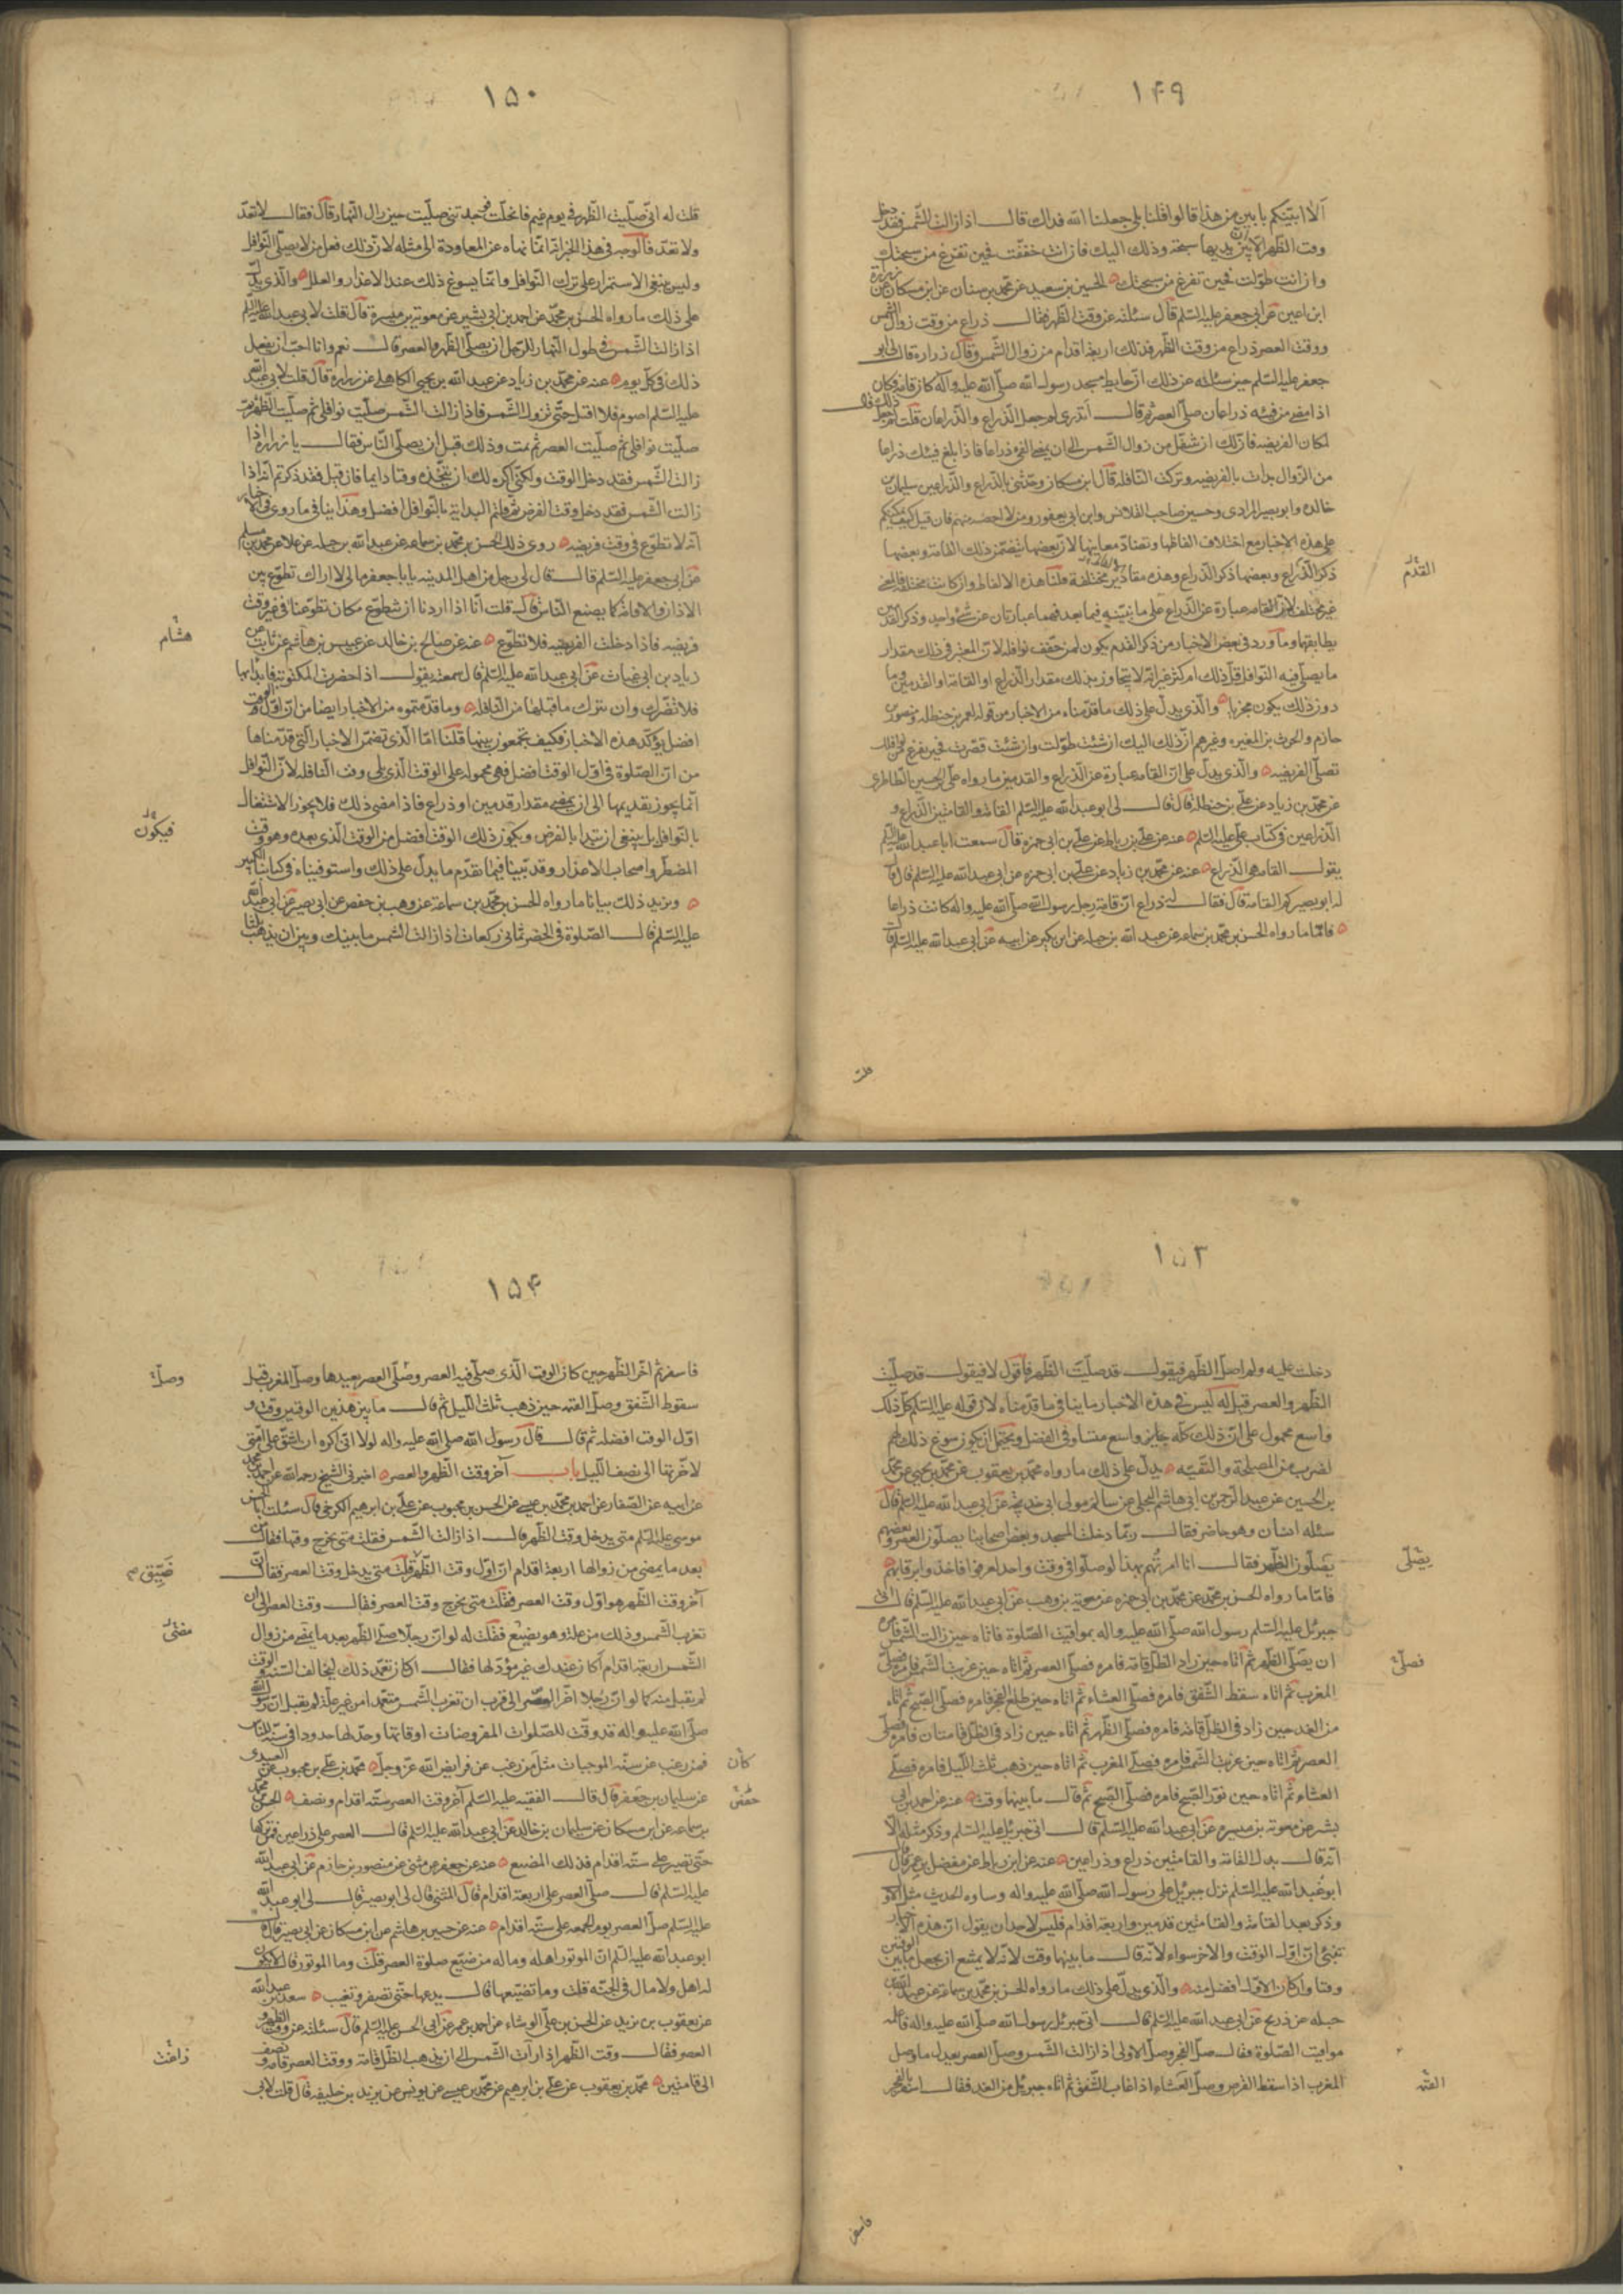 ١٤٩
ألا انبئكم بابين من هذا قالوا قلنا بلى جعلنا الله فداك قال اذا زالت الشمس فقد دخل
وقت الظهر الا ان بين يديها سبحة وذلك اليك فان انت خففت فحين تفرغ من سبحتك
وان انت طولت فحين تفرغ من سبحتك الحسين بن سعيد عن محمد بن سنان عن ابن مسكان عن زرارة
ابن اعين عن ابى جعفر عليه السلم قال سئلته عن وقت الظهر فقال ذراع من زوال الشمس
ووقت العصر ذراع من وقت الظهر فذلك اربعة اقدام من زوال الشمس وقال زرارة قال لى ابو
جعفر عليه السلم حين سئلته عن ذلك ان حايط مسجد رسول الله صلى الله عليه وآله كان قامة فكان
اذا مضى من فيئه ذراعان صلى العصر ثم قال أتدرى لم جعل الذراع والذراعان قلت لم جعل ذلك قال
لمكان الفريضه فان لك ان تتنفل من زوال الشمس الى ان يمضى الفئ ذراعا فاذا بلغ فيئك ذراعا
من الزوال بدات بالفريضه وتركت النافلة قال ابن مسكان وحدثنى بالذراع والذراعين سليمان بن
خالد وابو بصير المرادى وحسين صاحب القلانس وابن ابى يعفور ومن لا احصيه منهم فان قيل كيف يمكنكم
على هذه الاخبار مع اختلاف الفاظها وتضاد معانيها لان بعضها يتضمن ذلك القامة وبعضها
ذكر الذراع وبعضها ذكر القدم وهذه مقادير مختلفة قلنا هذه الالفاظ وان كانت مختلفة فالمعنى
القدم
غير مختلف لان القامه عبارة عن الذراع على ما نبينه فيما بعد فهما عبارتان عن شئ واحد وذكر القدمين
يطابقهما وما ورد فى بعض الاخبار من ذكر القدم يكون لمن خفف نوافله لان المعتبر فى ذلك مقدار
ما يصلى فيه النوافل قل ذلك ام كثر غير انه لا يتجاوز بذلك مقدار الذراع او القامة او القدمين وما
دون ذلك يكون مجزيا والذى يدل على ذلك ما قدمناه من الاخبار من قوله لعمر بن حنظله ومنصور بن
حازم والحرث بن المغيره وغيرهم ان ذلك اليك ان شئت طولت وان شئت قصرت فحين تفرغ من نوافلك
تصلى الفريضه والذى يدل على ان القامه عبارة عن الذراع والقدمين ما رواه على بن الحسين الطاطرى
عن محمد بن زياد عن على بن حنظله قال قال لى ابو عبدالله عليه السلم القامة والقامتين الذراع و
الذراعين فى كتاب على عليه السلم عنه عن على بن رباط عن على بن ابى حمزه قال سمعت ابا عبد الله عليه السلم
يقول القامه هى الذراع عنه عن محمد بن زياد عن على بن ابى حمزه عن ابى عبدالله عليه السلم قال قال
له ابو بصير كم القامة قال فقال لى ذراع ان قامة رحل رسول الله صلى الله عليه واله كانت ذراعا
فاما ما رواه الحسن بن محمد بن سماعه عن عبد الله بن جبله عن ابن بكير عن ابيه عن ابى عبدالله عليه السلم قال
قلت
١٥٠
قلت له انى صليت الظهر فى يوم غيم فانجلت فوجدتنى صليت حين زال النهار قال فقال لا تعد
ولا تعد فالوجه فى هذا الخبر انه انما نهاه عن المعاودة الى مثله لان ذلك فعل من لا يصلى النوافل
وليس ينبغى الاستمرار على ترك النوافل وانما يسوغ ذلك عند الاعذار والعلل والذى يدل
على ذلك ما رواه الحسن بن محمد عن احمد بن ابى بشير عن معوية بن ميسرة قال قلت لابى عبدالله عليه السلم
اذا زالت الشمس فى طول النهار للرجل ان يصلى الظهر والعصر قال نعم وانا احب ان يفعل
ذلك فى كل يوم عنه عن محمد بن زياد عن عبد الله بن يحيى الكاهلى عن زرارة قال قلت لابى عبد الله
عليه السلم اصوم فلا اقيل حتى تزول الشمس فاذا زالت الشمس صليت نوافلى ثم صليت الظهر ثم
صليت نوافلى ثم صليت العصر ثم نمت وذلك قبل ان يصلى الناس فقال يا زرارة اذا
زالت الشمس فقد دخل الوقت ولكنى اكره لك ان تتخذه وقتا دايما فان قيل فقد ذكرتم انه اذا
زالت الشمس فقد دخل وقت الفرض وقلتم البداية بالنوافل افضل وهذا ينافى ما روى فى اخبار
انه لا تطوع فى وقت فريضه روى ذلك الحسن بن محمد بن سماعه عن عبد الله بن جبله عن علا عن محمد بن مسلم
عن ابى جعفر عليه السلم قال قال لى رجل من اهل المدينه يا با جعفر ما لى لا اراك تطوع بين
الاذان والاقامة كما يصنع الناس قال قلت انا اذا اردنا ان نتطوع كان تطوعنا فى غير وقت
هشام
فريضه فاذا دخلت الفريضه فلا تطوع عنه عن صالح بن خالد عن عبيس بن هاشم عن ثابت عن
زياد بن ابى غياث عن ابى عبدالله عليه السلم قال سمعته يقول اذا حضرت المكتوبة فابدا بها
فلا تضرك وان تترك ما قبلها من النافله وما قدمتموه من الاخبار ايضا من ان اول الوقت
افضل يؤكد هذه الاخبار فكيف تجمعون بينهما قلنا اما الذى تضمن الاخبار التى قدمناها
من ان الصلوة فى اول الوقت افضل فهى محمولة على الوقت الذى يلى وقت النافله لان النوافل
انما يجوز تقديمها الى ان يمضى مقدار قدمين او ذراع فاذا مضى ذلك فلا يجوز الاشتغال
فيكون
بالنوافل بل ينبغى ان تبتدا بالفرض ويكون ذلك الوقت افضل من الوقت الذى بعده وهو وقت
المضطر واصحاب الاعذار وقد بينا فيما تقدم ما يدل على ذلك واستوفيناه فى كتابنا الكبير
ونزيد ذلك بيانا ما رواه الحسن بن محمد بن سماعة عن وهيب بن حفص عن ابى بصير عن ابى عبد الله
عليه السلم قال الصلوة فى الحضر ثمانى ركعات اذا زالت الشمس ما بينك وبين ان يذهب ثلثا
١٥٣
دخلت عليه ولم اصل الظهر فيقول قد صليت الظهر فاقول لا فيقول قد صليت
الظهر والعصر قيل له ليس فى هذه الاخبار ما ينافى ما قدمناه لان قوله عليه السلم كل ذلك
واسع محمول على ان ذلك كله جايز واسع متساو فى الفضل ويحتمل ان يكون سوغ ذلك لهم
لضرب من المصلحة والتقيه يدل على ذلك ما رواه محمد بن يعقوب عن محمد بن يحيى عن محمد
بن الحسين عن عبد الرحمن بن ابى هاشم البجلى عن سالم مولى ابى خديجة عن ابى عبد الله عليه السلم قال
سئله انسان وهو حاضر فقال ربما دخلت المسجد وبعض اصحابنا يصلون العصر وبعضهم
يصلى
يصلون الظهر فقال انا امرتهم بهذا لو صلوا فى وقت واحد لعرفوا فاخذ برقابهم
فاما ما رواه الحسن بن محمد عن محمد بن ابى حمزه عن معوية بن وهب عن ابى عبدالله عليه السلم قال اتى
جبرئل عليه السلم رسول الله صلى الله عليه واله بمواقيت الصلوة فاتاه حين زالت الشمس فامره
فصلى
ان يصلى الظهر ثم اتاه حين زاد الظل قامة فامره فصلى العصر ثم اتاه حين غربت الشمس فامره فصلى
المغرب ثم اتاه سقط الشفق فامره فصلى العشاء ثم اتاه حين طلع الفجر فامره فصلى الصبح ثم اتاه
من الغد حين زاد فى الظل قامة فامره فصلى الظهر ثم اتاه حين زاد فى الظل قامتان فامره فصلى
العصر ثم اتاه حين غربت الشمس فامره فصلى المغرب ثم اتاه حين ذهب ثلث الليل فامره فصلى
العشاء ثم اتاه حين نور الصبح فامره فصلى الصبح ثم قال ما بينهما وقت عنه عن احمد بن ابى
بشر عن معوية بن ميسره عن ابى عبدالله عليه السلم قال اتى جبرئل عليه السلم وذكر مثله الا
انه قال بدل القامة والقامتين ذراع وذراعين عنه عن ابن رباط عن مفضل بن عمر قال
ابو عبدالله عليه السلم نزل جبرئل على رسول الله صلى الله عليه واله وساق الحديث مثل الاول
وذكر بعد القامة والقامتين قدمين واربعة اقدام فليس لاحد ان يقول ان هذه الاخبار
تنبئ ان اول الوقت والاخر سواء لانه قال ما بينهما وقت لانه لا يمتنع ان يجعل ما بين الوقتين
وقتا وان كان الاول افضل منه والذى يدل على ذلك ما رواه الحسن بن محمد بن سماعة عن عبد الله بن
جبله عن ذريح عن ابى عبدالله عليه السلم قال اتى جبرئل رسول الله صلى الله عليه واله فاعلمه
مواقيت الصلوة فقال صل الفجر وصل الاولى اذا زالت الشمس وصل العصر بعيدها وصل
العتمه
المغرب اذا سقط القرص وصل العشاء اذا غاب الشفق ثم اتاه جبرئل من الغد فقال اسفر بالفجر
فاسفر
١٥٤
وصل
فاسفر ثم اخر الظهر حين كان الوقت الذى صلى فيه العصر وصلى العصر بعيدها وصل المغرب قبل
سقوط الشفق وصل العتمه حين ذهب ثلث الليل ثم قال ما بين هذين الوقتين وقت و
اول الوقت افضله ثم قال قال رسول الله صلى الله عليه واله لولا انى اكره ان اشق على امتى
لاخرتها الى نصف الليل باب آخر وقت الظهر والعصر اخبرنى الشيخ رحمه الله عن احمد بن محمد
عن ابيه عن الصفار عن احمد بن محمد بن عيسى عن الحسن بن محبوب عن على بن ابرهيم الكرخى قال سئلت ابا الحسن
موسى عليه السلم متى يدخل وقت الظهر قال اذا زالت الشمس فقلت متى يخرج وقتها فقال من
ضيق صح
بعد ما يمضى من زوالها اربعة اقدام ان اول وقت الظهر قلت متى يدخل وقت العصر فقال ان
آخر وقت الظهر هو اول وقت العصر فقلت متى يخرج وقت العصر فقال وقت العصر الى ان
تغرب الشمس وذلك من علة وهو تضييع فقلت له لو ان رجلا صلى الظهر بعد ما يمضى من زوال
الشمس اربعة اقدام أكان عندك غير مؤد لها فقال ان كان تعمد ذلك ليخالف السنة والوقت
لم يقبل منه كما لو ان رجلا اخر العصر الى قرب ان تغرب الشمس متعمدا من غير علة لم يقبل ان رسول الله
صلى الله عليه واله قد وقت للصلوات المفروضات اوقاتا وحد لها حدودا فى سنته للناس
كان
فمن رغب عن سنه الموجبات مثل من رغب عن فرايض الله عز وجل محمد بن على بن محبوب عن العبيدى
حفص
عن سليمان بن جعفر قال قال الفقيه عليه السلم آخر وقت العصر سته اقدام ونصف الحسن بن محمد
بن سماعه عن ابن مسكان عن سليمان بن خالد عن ابى عبدالله عليه السلم قال العصر على ذراعين فمن تركها
حتى تصير على سته اقدام فذلك المضيع عنه عن جعفر عن مثنى عن منصور بن حازم عن ابى عبد الله
عليه السلم قال صلى العصر على اربعة اقدام قال المثنى قال لى ابو بصير قال لى ابو عبد الله
عليه السلم صل العصر يوم الجمعه على سته اقدام عنه عن حسين بن هاشم عن ابن مسكان عن ابى بصير قال قال
ابو عبدالله عليه السلم ان الموتور اهله وماله من ضيع صلوة العصر قلت وما الموتور قال لا يكون
له اهل ولا مال فى الجنة قلت وما تضيعها قال يدعها حتى تصفر وتغيب سعد بن عبد الله
عن يعقوب بن يزيد عن الحسن بن على الوشاء عن احمد بن عمر عن ابى الحسن عليه السلم قال سئلته عن وقت الظهر و
زاغت
العصر فقال وقت الظهر اذا زالت الشمس الى ان يذهب الظل قامة ووقت العصر قامة ونصف
الى قامتين محمد بن يعقوب عن على بن ابرهيم عن محمد بن عيسى عن يونس عن يزيد بن خليفه قال قلت لابى